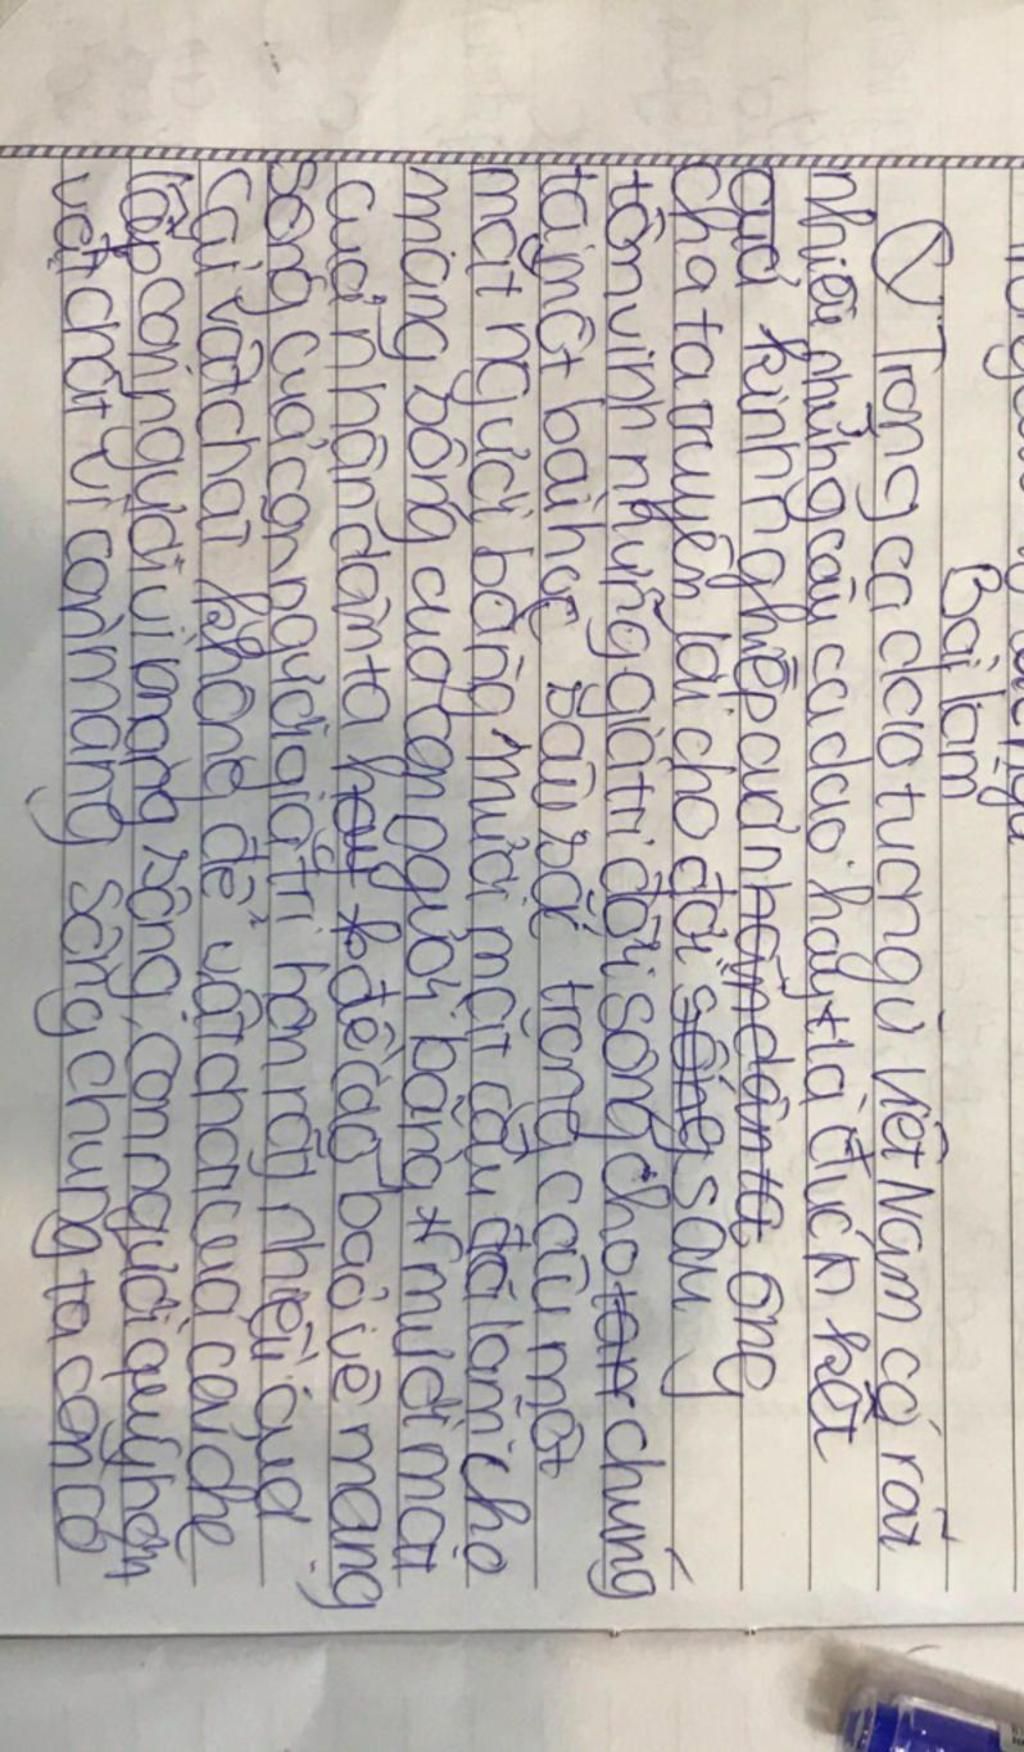 Bài làm
Trong ca dao tục ngữ Việt Nam có rất
nhiều những câu ca dao hay + là đúc kết
quá kinh nghiệp quá nhân dân ta ông
cha ta truyền lại cho đời sống sau
tôn vinh những giá trị đời sống cho tan chúng
ta một bài học sâu sắc trong câu một
một người bằng mười mặt của đã làm cho
mạng sống của con người bằng + mười mặt
của nhân dân ta hay k đề cao bảo vệ mạng
sống của con người giá trị hơn rất nhiều quá
cái vật chất không để vật chất của cải che
lấp con người vì mạng sống, con người quý hơn
vật chất vì còn mạng sống chúng ta còn có